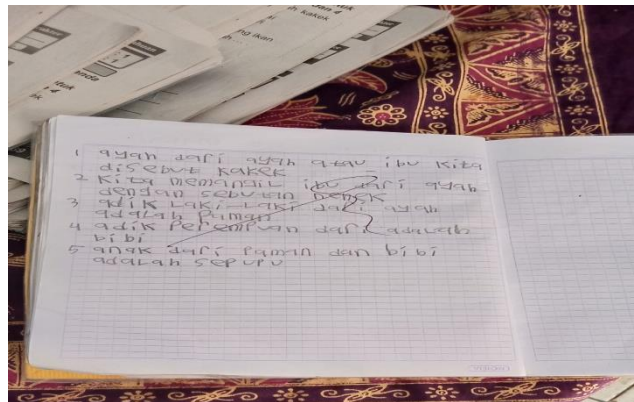 h kakek
ng ikan
h....
tuk
anda
1 ayah dari ayah atau ibu kita
disebut kakek
2 kita memangil ibu dari ayah
dengan sebutan nenek
3 adik laki-laki dari ayah
adalah paman
4 adik perempuan dari adalah
bibi
5 anak dari paman dan bibi
adalah sepupu